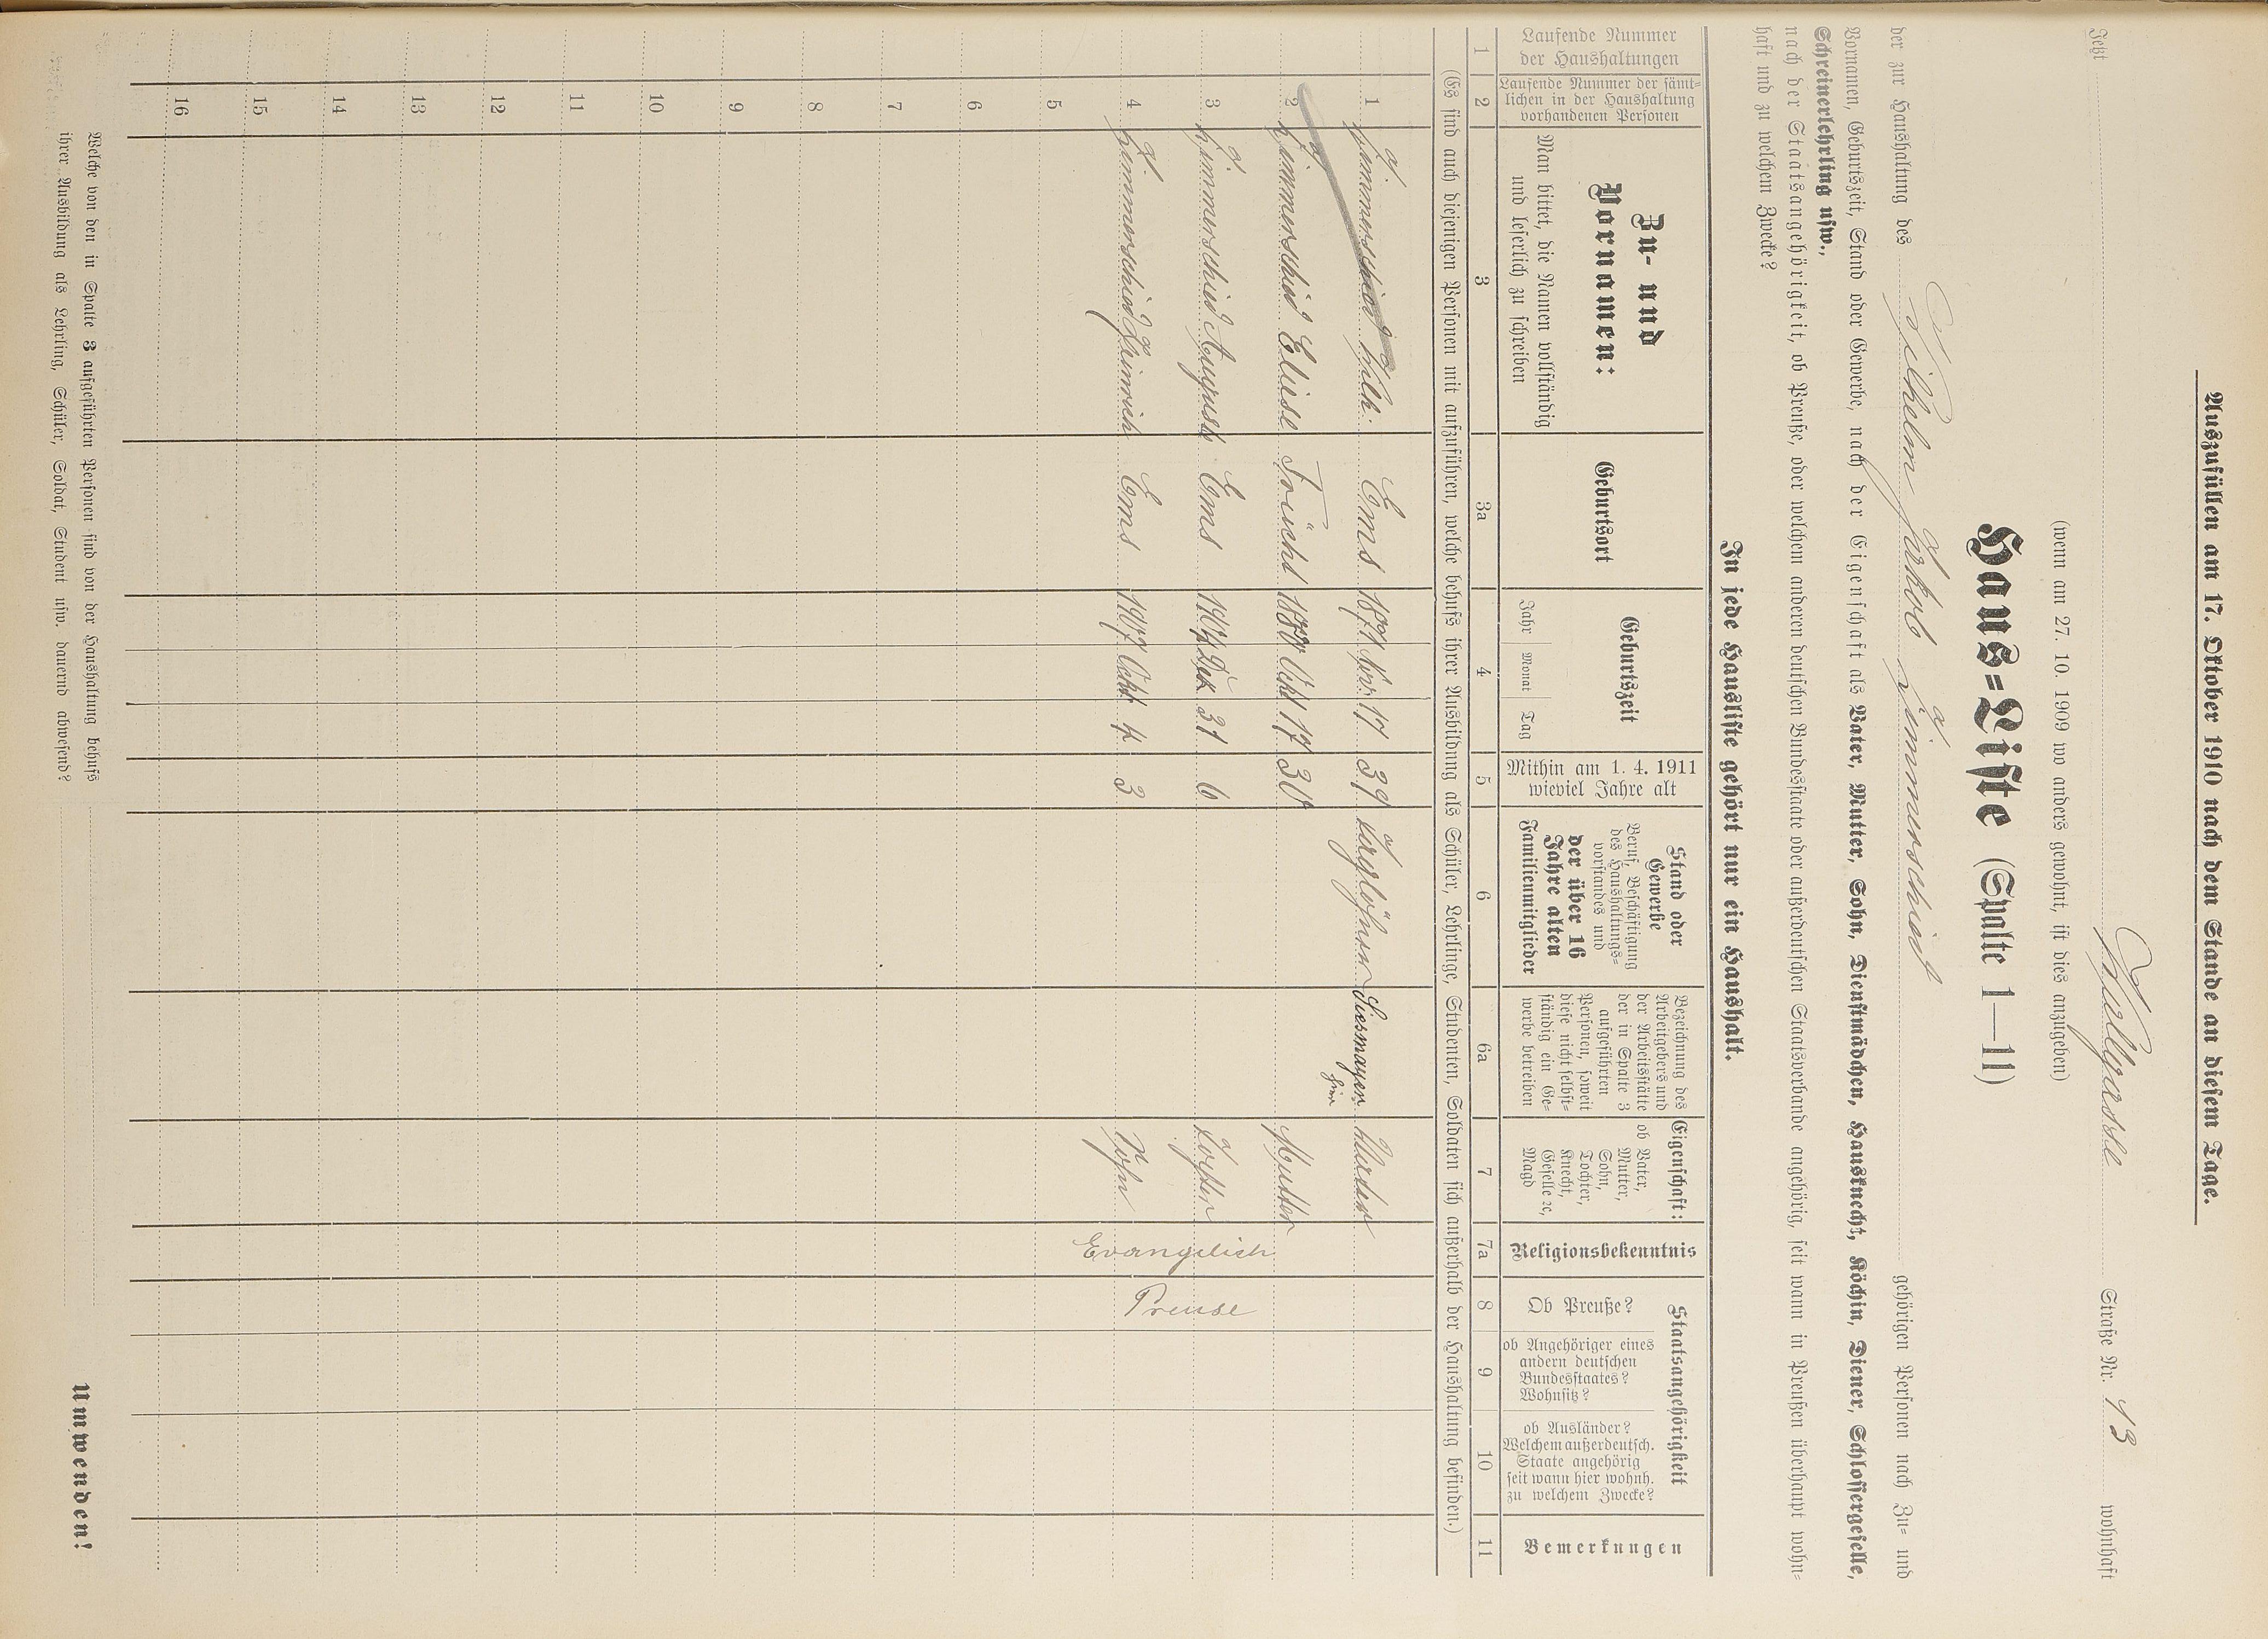 Auszufüllen am 17. Oktober 1910 nach dem Stande an diesem Tage.
Jetzt Wallgrasse Straße Nr. 13 wohnhaft
(wenn am 27. 10. 1909 wo anders gewohnt, ist dies anzugeben)
Haus=Liste (Spalte 1—11)
der zur Haushaltung des Wilhelm Jakob Zimmerschied gehörigen Personen nach Zu= und
Vornamen, Geburtszeit, Stand oder Gewerbe, nach der Eigenschaft als Vater, Mutter, Sohn, Dienstmädchen, Hausknecht, Köchin, Diener, Schlossergeselle,
Schreinerlehrling usw.,
nach der Staatsangehörigkeit, ob Preuße, oder welchem anderen deutschen Bundesstaate oder außerdeutschen Staatsverbande angehörig, seit wann in Preußen überhaupt wohn=
haft und zu welchem Zwecke?
In jede Hausliste gehört nur ein Haushalt.
Laufende Nummer
der Haushaltungen
Laufende Nummer der sämt=
lichen in der Haushaltung
vorhandenen Personen
Zu- und
Vornamen:
Man bittet, die Namen vollständig
und leserlich zu schreiben
Geburtsort
Geburtszeit
Jahr Monat Tag
Mithin am 1. 4. 1911
wieviel Jahre alt
Stand oder
Gewerbe
Beruf, Beschäftigung
des Haushaltungs=
vorstandes und
der über 16
Jahre alten
Familienmitglieder
Bezeichnung des
Arbeitgebers und
der Arbeitsstätte
der in Spalte 3
aufgeführten
Personen, soweit
diese nicht selbst=
ständig ein Ge=
werbe betreiben
Eigenschaft:
ob Vater,
Mutter,
Sohn,
Tochter,
Knecht,
Geselle 2c,
Magd
Religionsbekenntnis
Staatsangehörigkeit
Ob Preuße?
ob Angehöriger eines
andern deutschen
Bundesstaates?
Wohnsitz?
ob Ausländer?
Welchem außerdeutsch.
Staate angehörig
seit wann hier wohnh.
zu welchem Zwecke?
Bemerkungen
1 2 3 3a 4 5 6 6a 7 7a 8 9 10 11
(Es sind auch diejenigen Personen mit aufzuführen, welche behufs ihrer Ausbildung als Schüler, Lehrlinge, Studenten, Soldaten sich außerhalb der Haushaltung befinden.)
1 Zimmerschied Wilh. Ems 1871 17 39 Taglöhner Siesmayer Vater
2 Zimmerschied Elise Frücht 1880 Okt 17 30 Mutter
3 Zimmerschied August Ems 1904 Dez 31 6 Tochter
Evangelisch
Preuse
4 Zimmerschied Heinrich Ems 1907 Okt 4 3 Sohn
5
6
7
8
9
10
11
12
13
14
15
16
Welche von den in Spalte 3 aufgeführten Personen sind von der Haushaltung behufs
ihrer Ausbildung als Lehrling, Schüler, Soldat, Student usw. dauernd abwesend?
Umwenden!